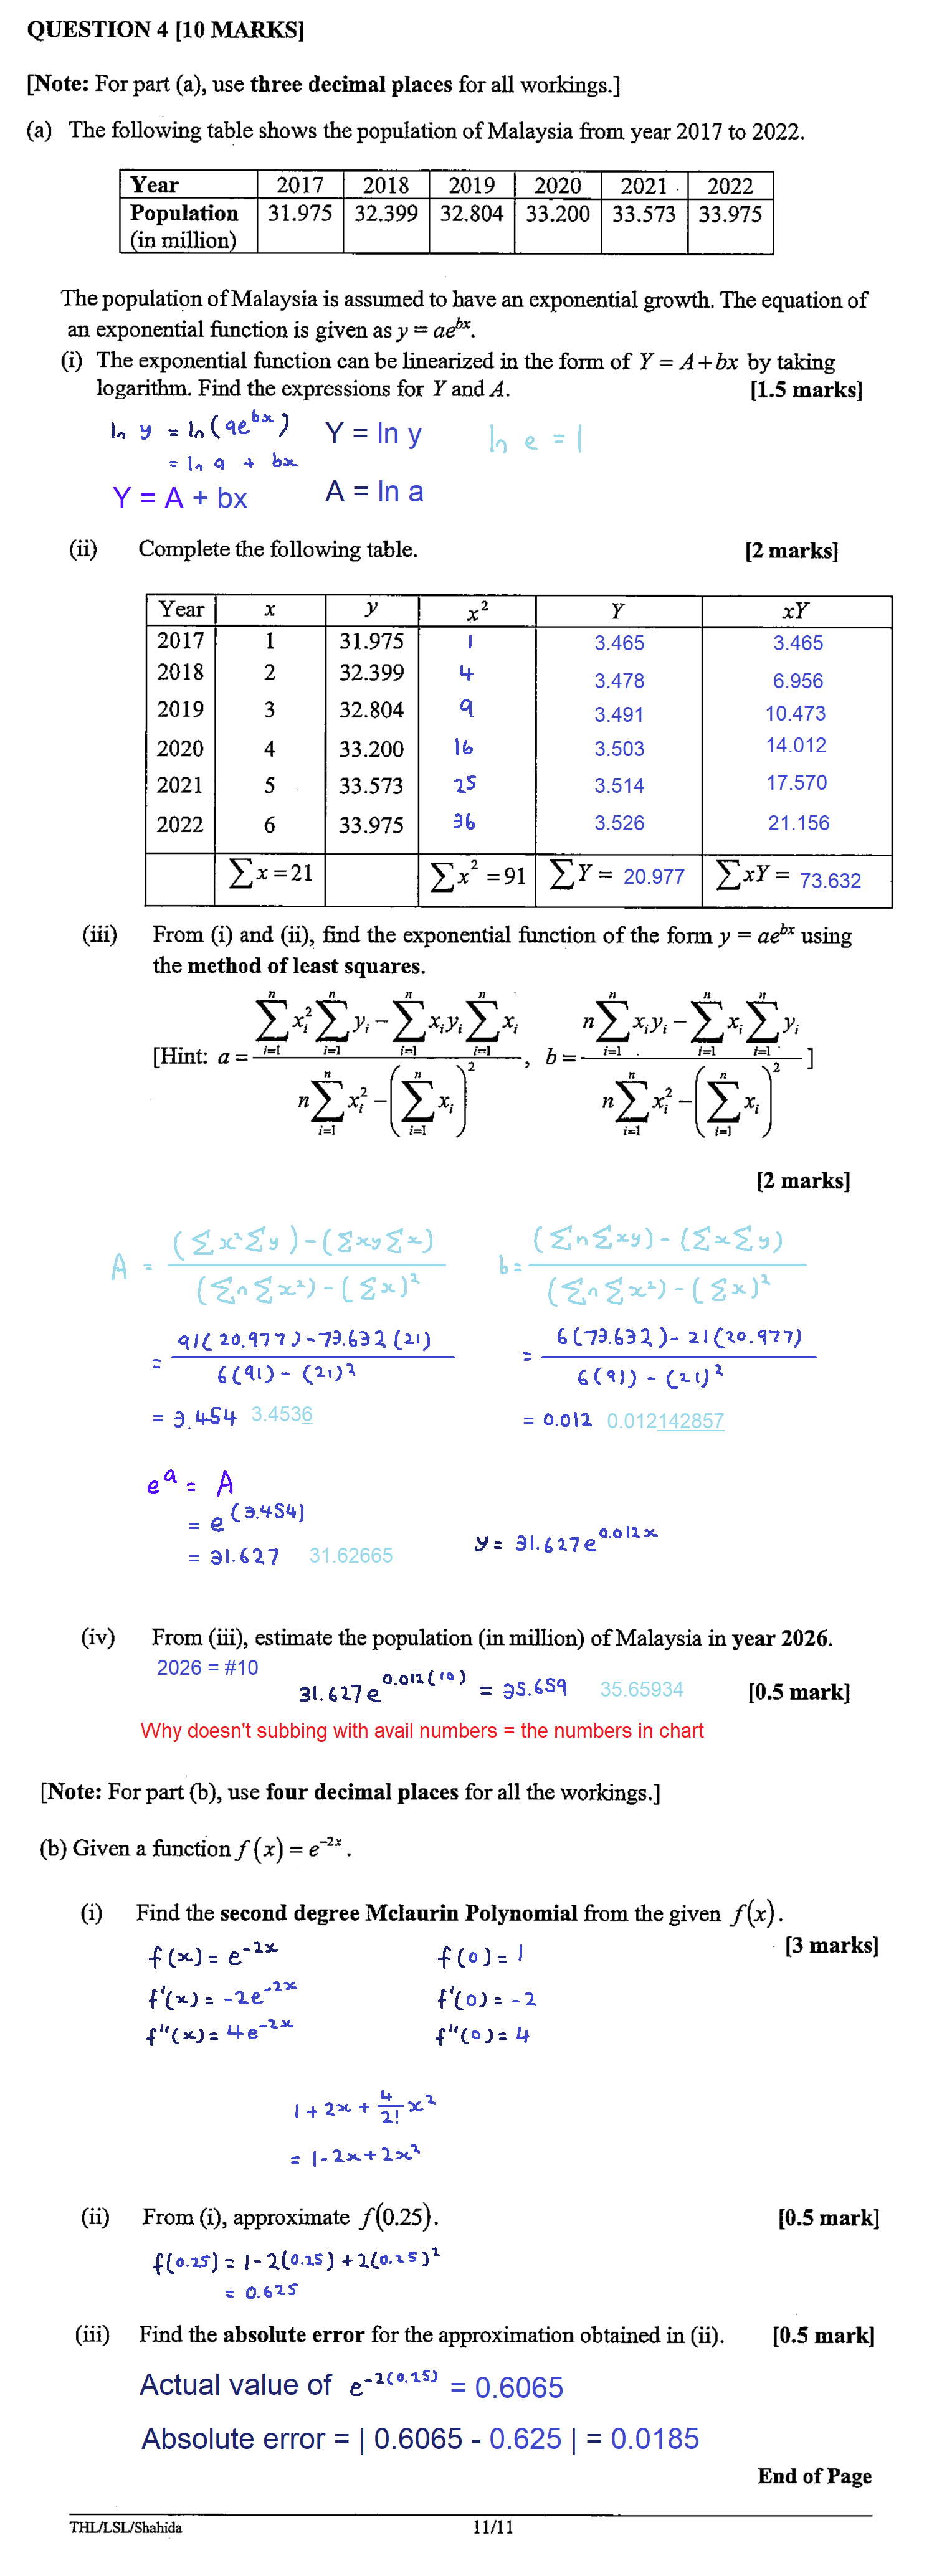 QUESTION 4 [10 MARKS]
[Note: For part (a), use three decimal places for all workings.]
(a) The following table shows the population of Malaysia from year 2017 to 2022.
Year 2017 2018 2019 2020 2021 2022
Population 31.975 32.399 32.804 33.200 33.573 33.975
(in million)
The population of Malaysia is assumed to have an exponential growth. The equation of
an exponential function is given as y = ae^{bx}.
(i) The exponential function can be linearized in the form of Y = A + bx by taking
logarithm. Find the expressions for Y and A. [1.5 marks]
ln y = ln(ae^{bx}) Y = ln y ln e = 1
= ln a + bx
Y = A + bx A = ln a
(ii) Complete the following table. [2 marks]
Year x y x² Y xY
2017 1 31.975 1 3.465 3.465
2018 2 32.399 4 3.478 6.956
2019 3 32.804 9 3.491 10.473
2020 4 33.200 16 3.503 14.012
2021 5 33.573 25 3.514 17.570
2022 6 33.975 36 3.526 21.156
∑x = 21 ∑x² = 91 ∑Y = 20.977 ∑xY = 73.632
(iii) From (i) and (ii), find the exponential function of the form y = ae^{bx} using
the method of least squares.
[Hint: a = (∑_{i=1}^{n} x_i² ∑_{i=1}^{n} y_i − ∑_{i=1}^{n} x_i y_i ∑_{i=1}^{n} x_i) / (n∑_{i=1}^{n} x_i² − (∑_{i=1}^{n} x_i)²), b = (n∑_{i=1}^{n} x_i y_i − ∑_{i=1}^{n} x_i ∑_{i=1}^{n} y_i) / (n∑_{i=1}^{n} x_i² − (∑_{i=1}^{n} x_i)²)]
[2 marks]
A = ((∑x²∑y) − (∑xy∑x)) / ((∑n∑x²) − (∑x)²) b = ((∑n∑xy) − (∑x∑y)) / ((∑n∑x²) − (∑x)²)
= (91(20.977) − 73.632(21)) / (6(91) − (21)²) = (6(73.632) − 21(20.977)) / (6(91) − (21)²)
= 3.454 3.4536 = 0.012 0.012142857
e^a = A
= e^(3.454)
= 31.627 31.62665 y = 31.627e^{0.012x}
(iv) From (iii), estimate the population (in million) of Malaysia in year 2026.
2026 = #10
31.627e^{0.012(10)} = 35.659 35.65934 [0.5 mark]
Why doesn't subbing with avail numbers = the numbers in chart
[Note: For part (b), use four decimal places for all the workings.]
(b) Given a function f(x) = e^{-2x}.
(i) Find the second degree Mclaurin Polynomial from the given f(x).
[3 marks]
f(x) = e^{-2x} f(0) = 1
f'(x) = -2e^{-2x} f'(0) = -2
f''(x) = 4e^{-2x} f''(0) = 4
1 + 2x + 4/2! x²
= 1 - 2x + 2x²
(ii) From (i), approximate f(0.25). [0.5 mark]
f(0.25) = 1 - 2(0.25) + 2(0.25)²
= 0.625
(iii) Find the absolute error for the approximation obtained in (ii). [0.5 mark]
Actual value of e^{-2(0.25)} = 0.6065
Absolute error = | 0.6065 - 0.625 | = 0.0185
End of Page
THL/LSL/Shahida 11/11